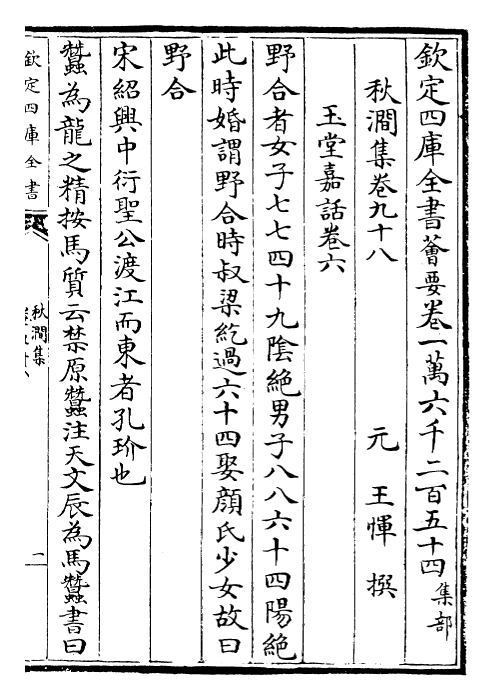 欽定四庫全書薈要卷一萬六千二百五十四集部
秋澗集卷九十八　元　王惲　撰
玉堂嘉話卷六
野合者女子七七四十九陰絶男子八八六十四陽絶
此時婚謂野合時叔梁紇過六十四娶顔氏少女故曰
野合
宋紹興中衍聖公渡江而東者孔玠也
蠶為龍之精按馬質云禁原蠶注天文辰為馬蠶書曰
欽定四庫全書
秋澗集
一